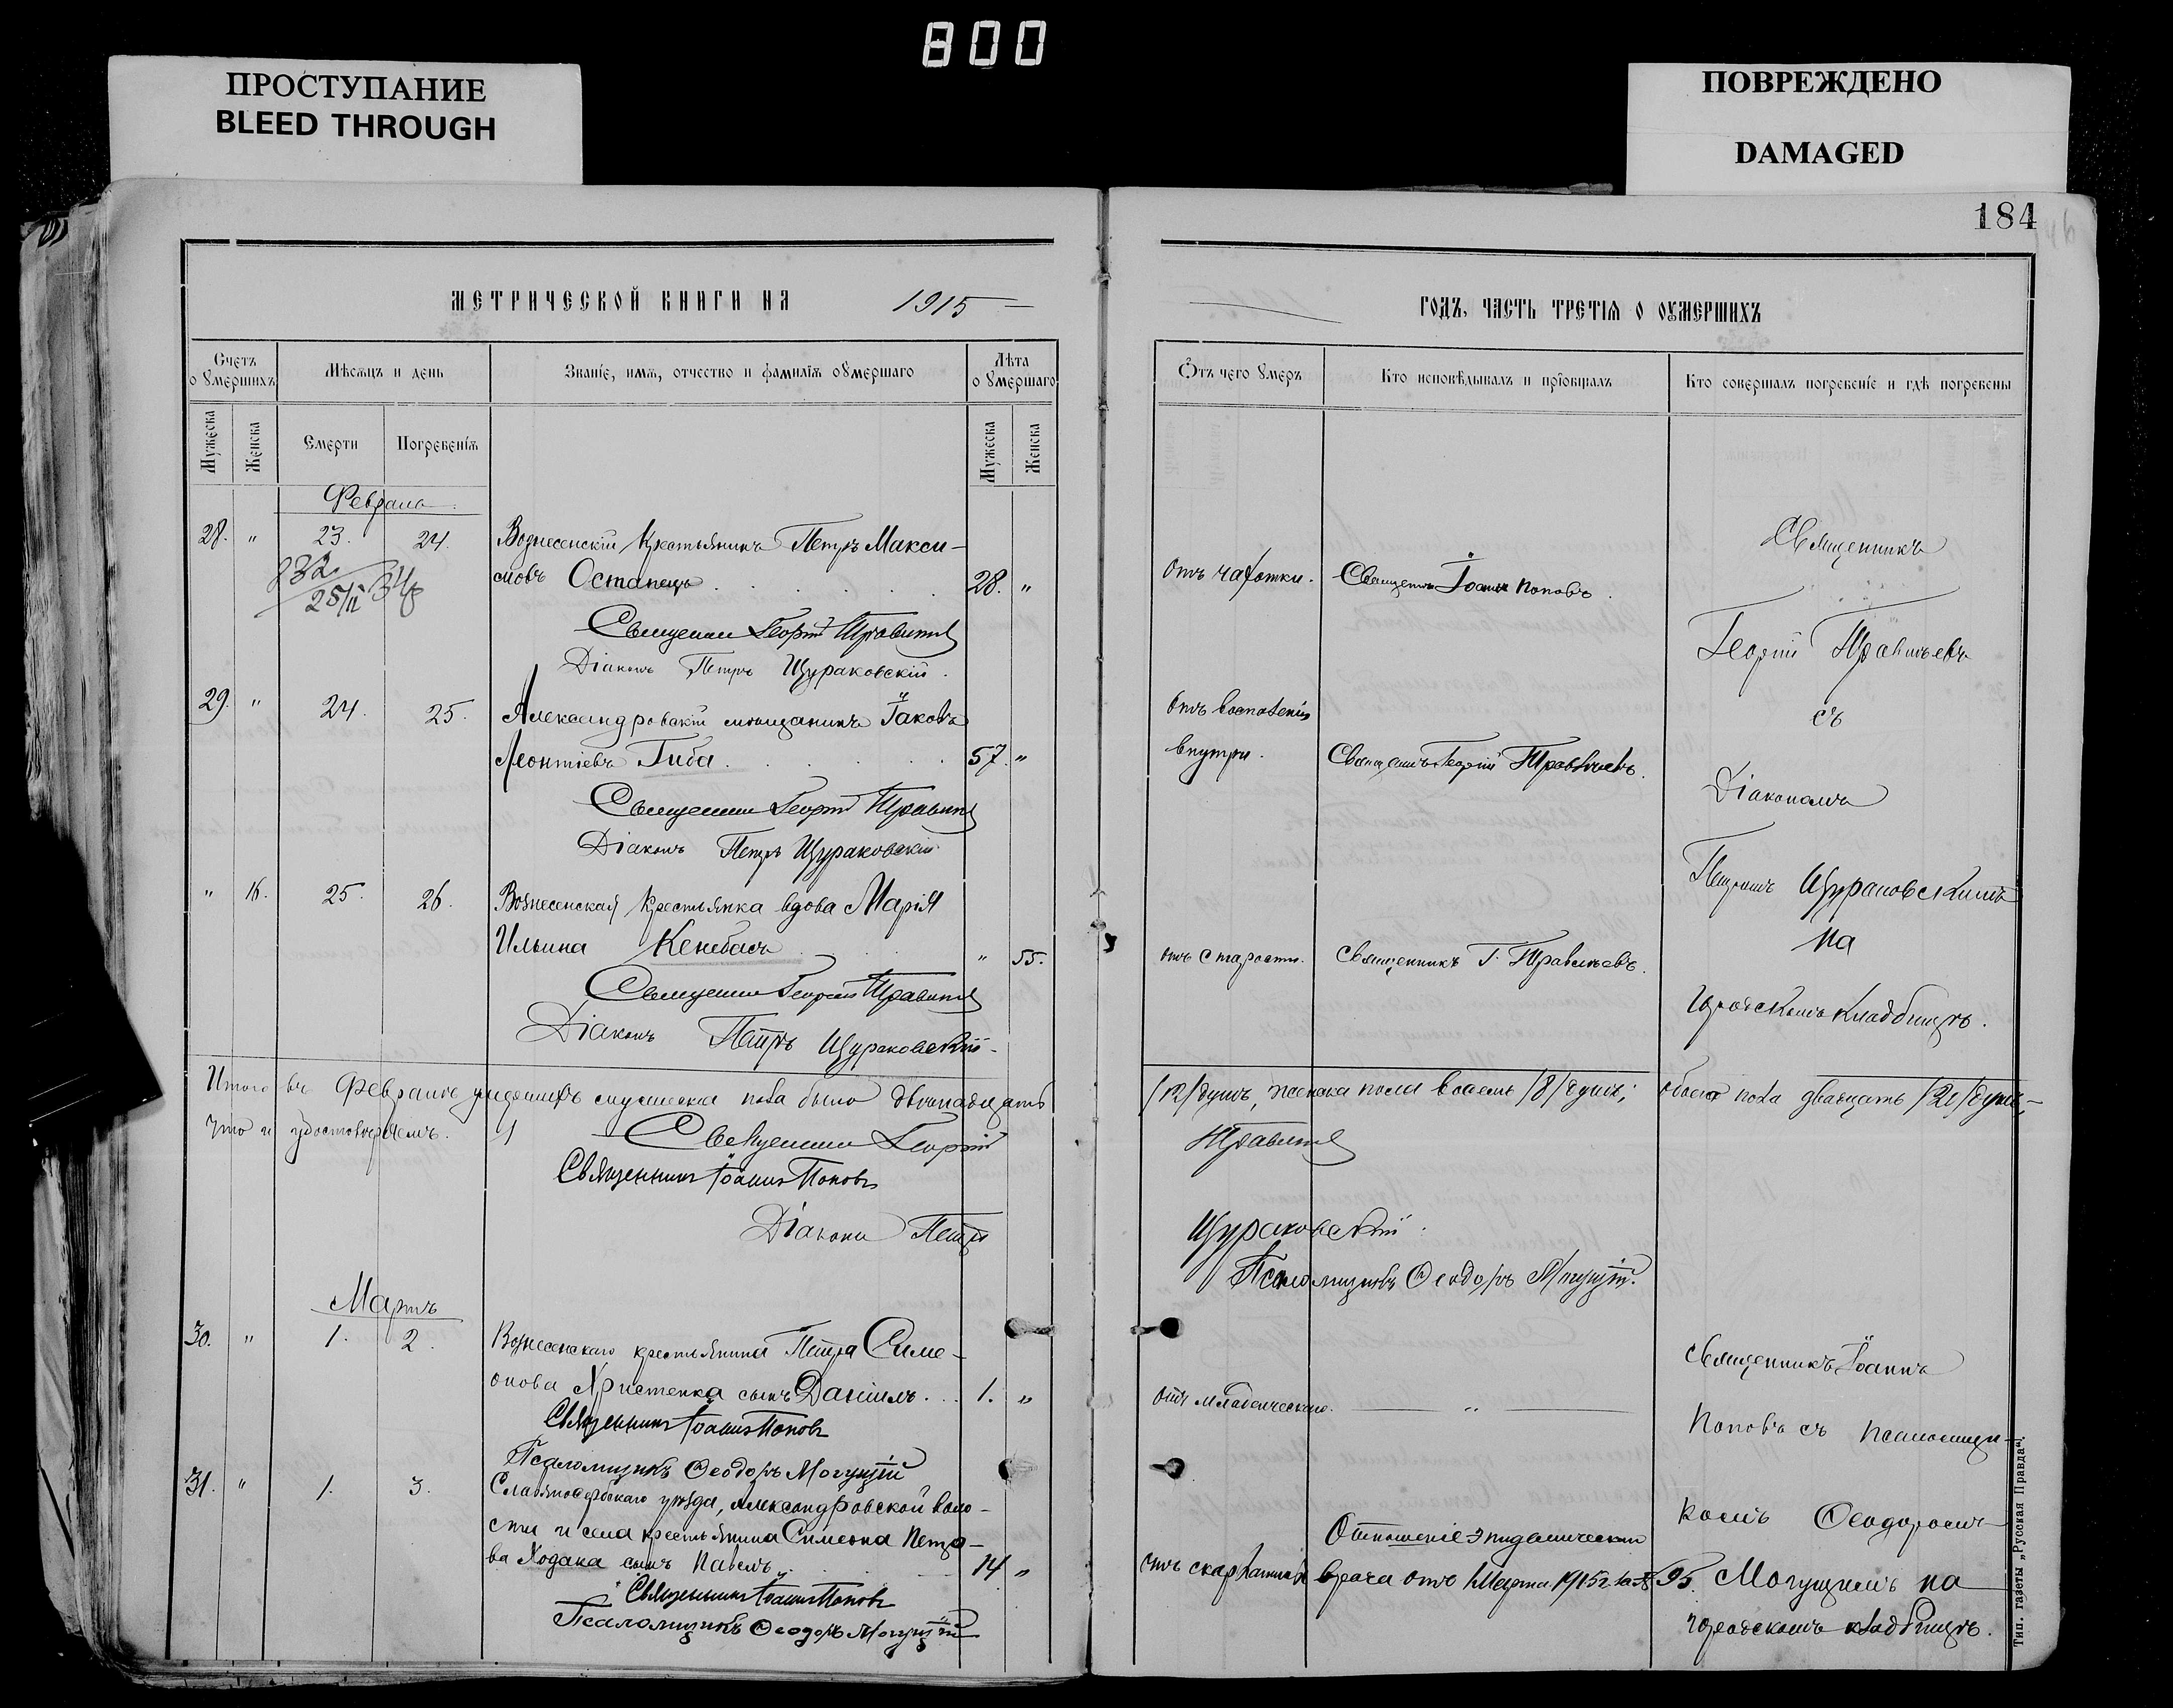 800
ПРОСТУПАНИЕ
BLEED THROUGH
ПОВРЕЖДЕНО
DAMAGED
184
МЕТРИЧЕСКОЙ КНИГИ НА 1915
Счетъ о умершихъ
Мѣсяцъ и день
Званіе, имя, отчество и фамилія умершаго
Лѣта о умершаго
Мужеска
Женска
Смерти
Погребенія
Мужеска
Женска
Февраль
28. " 23. 24. Вознесенскій крестьянинъ Петръ Макси-
832
25/II 348
мовъ Останецъ 28. "
Священник Георгій Правитъ
Діаконъ Петръ Щураковскій.
29. " 24. 25. Александровскій мѣщанинъ Іаковъ
Леонтіевъ Гиба 57. "
Священник Георгій
Діаконъ Петръ Щураковскій
" 16. 25. 26. Вознесенская крестьянка вдова Марія
Ильина Кенебасъ " 55.
Священник Георгій
Діаконъ Петръ Щураковскій
Итого въ Февралѣ умершихъ мужеска пола было двѣнадцать
что и удостовѣряемъ. Священник Георгій
Священникъ Іоаннъ Поповъ
Діаконъ Петръ
Мартъ
30. " 1. 2. Вознесенскаго крестьянина Петра Симе-
онова Христенка сынъ Даніилъ 1. "
Священникъ Іоаннъ Поповъ
Псаломщикъ Ѳеодоръ Могущій
31. " 1. 3. Славяносербскаго уѣзда, Александровской воло-
сти и села крестьянина Симеона Петро-
ва Ходака сынъ Павелъ 14 "
Священникъ Іоаннъ Поповъ
Псаломщикъ Ѳеодоръ Могущій
ГОДЪ, ЧАСТЬ ТРЕТІЯ О УМЕРШИХЪ
Отъ чего умеръ
Кто исповѣдывалъ и пріобщалъ
Кто совершалъ погребеніе и гдѣ погребены
Священникъ
отъ чахотки. Іоаннъ Поповъ.
Георгій
отъ воспаленія
съ
внутри. Георгій
Діакономъ
Петромъ Щураковскимъ
на
отъ старости. Священникъ Г.
городскомъ кладбищѣ.
/12/ душъ, женска пола восемь /8/ душъ; обоего пола двадцать /20/ душъ,
Щураковскій.
Псаломщикъ Ѳеодоръ Могущій.
Священникъ Іоаннъ
отъ младенческаго. "
Поповъ съ псаломщи-
комъ Ѳеодоромъ
Отношеніе эпидемическаго
отъ скарлатины врача отъ 1 Марта 1915 г. за № 95. Могущимъ на
городскомъ кладбищѣ.
Тип. газеты „Русская Правда".